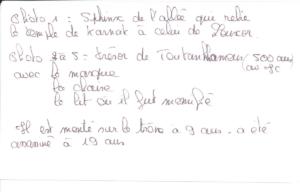 Photo 1 : Sphinx de l'allée qui relie
le temple de Karnak à celui de Louxor.
Photo 2 à 5 : trésor de Toutankhamon (500 ans
av JC
avec le masque
la chaise
le lit où il fut momifié
Il est monté sur le trône à 9 ans - a été
assassiné à 19 ans